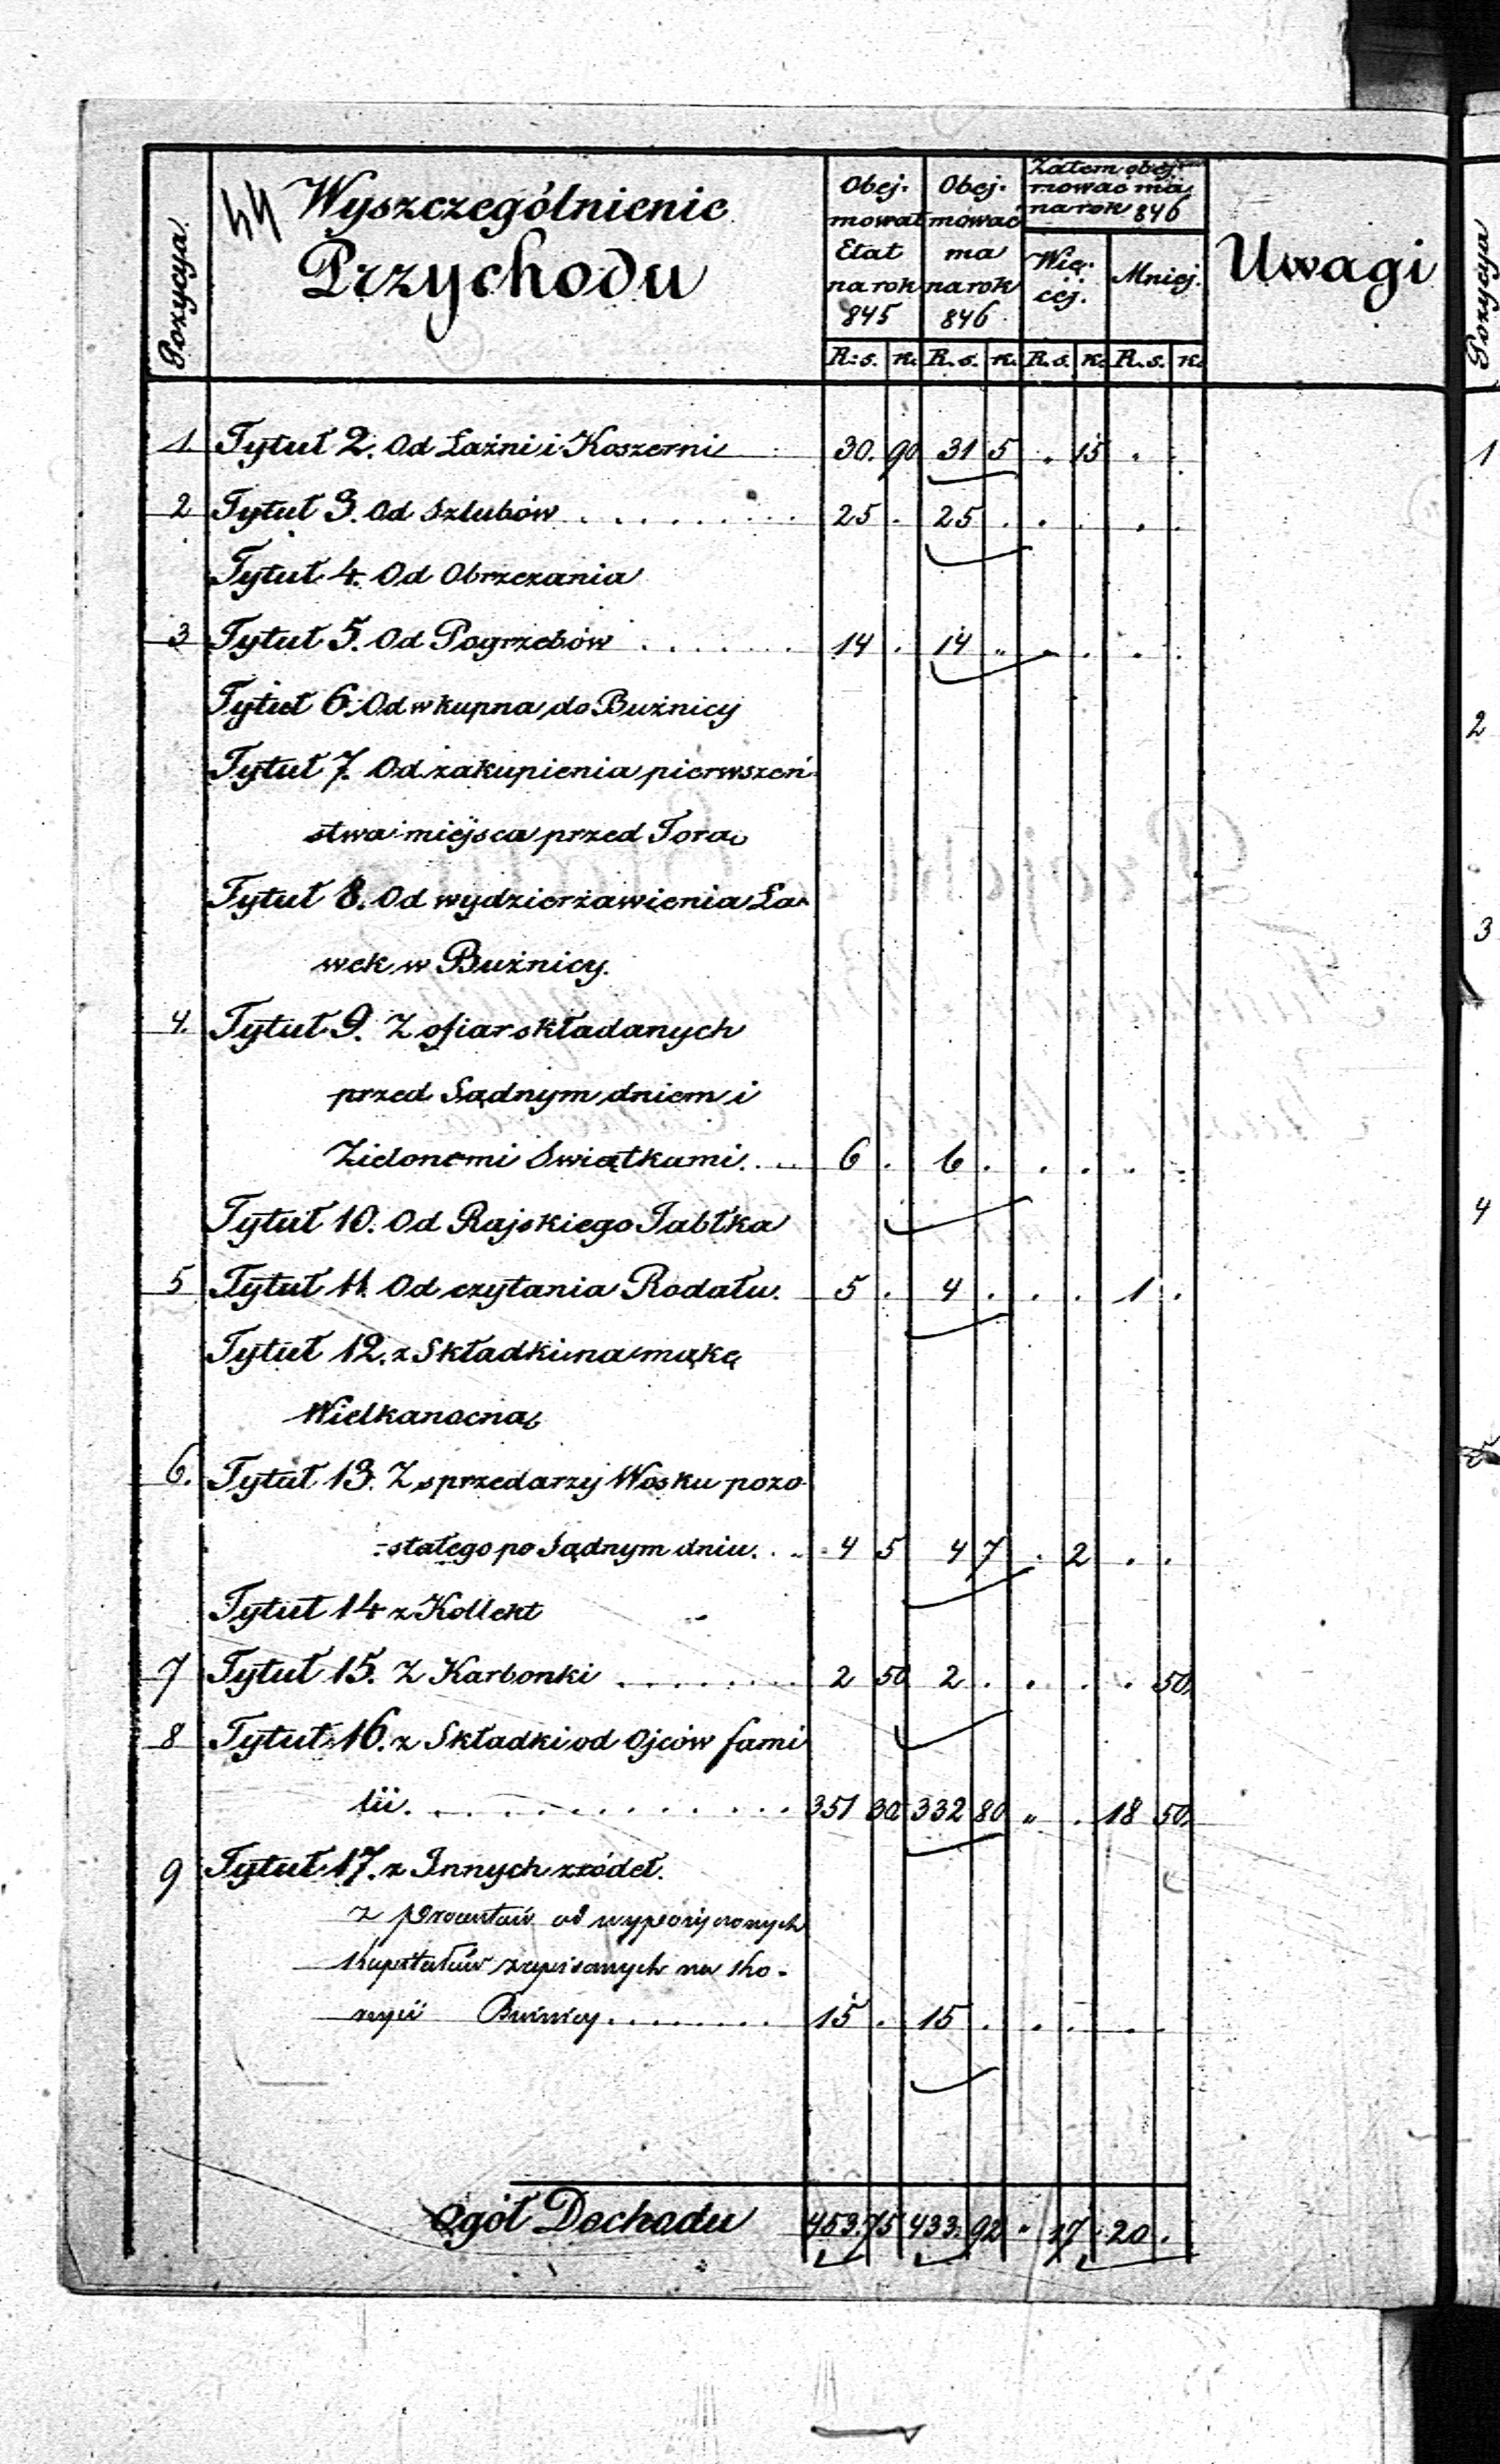 44
Wyszczególnienie
Przychodu
Pozycya
Obej-
mował
Etat
na rok
845
Obej-
mować
ma
na rok
846
Zatem obej-
mować ma
na rok 846
Wię-
cej.
Mniej.
Uwagi
R. s. k. R. s. k. R. s. k. R. s. k.
1. Tytuł 2. Od Łaźni i Koszerni 30. 90 31 5 . 15 . .
2 Tytuł 3. Od Szlubów . . . . . . . . 25 . 25 . . . . .
Tytuł 4. Od Obrzezania
3 Tytuł 5. Od Pogrzebów . . . . . . 14 . 14 . . . . .
Tytuł 6. Od wkupna do Bużnicy
Tytuł 7. Od zakupienia pierwszeń
stwa miejsca przed Torą
Tytuł 8. Od wydzierżawienia Ła-
wek w Bużnicy.
4. Tytuł 9. Z ofiar składanych
przed Sądnym dniem i
Zielonemi Swiątkami. . . . 6 . 6 . . . . .
Tytuł 10. Od Rajskiego Jabłka
5 Tytuł 11. Od czytania Rodału. 5 . 4 . . . 1 .
Tytuł 12. z Składki na mąkę
Wielkanocną
6. Tytuł 13. Z sprzedarzy Wosku pozo
-stałego po Sądnym dniu. . . 4 5 4 7 . 2 . .
Tytuł 14 z Kollekt
7 Tytuł 15. Z Karbonki . . . . . . . . 2 50 2 . . . . 50
8 Tytuł 16. z Składki od Ojców fami
lii. . . . . . . . . . . . . . 351 30 332 80 . . 18 50
9 Tytuł 17. z Innych zródeł.
z procentów od wypożyczonych
Kapitałów zapisanych na
Bużnicy . . . . . . . . 15 . 15 . . . . .
Ogół Dochodu 453. 75 433. 92 . 17 20 .
Pozycya
1
2
3
4